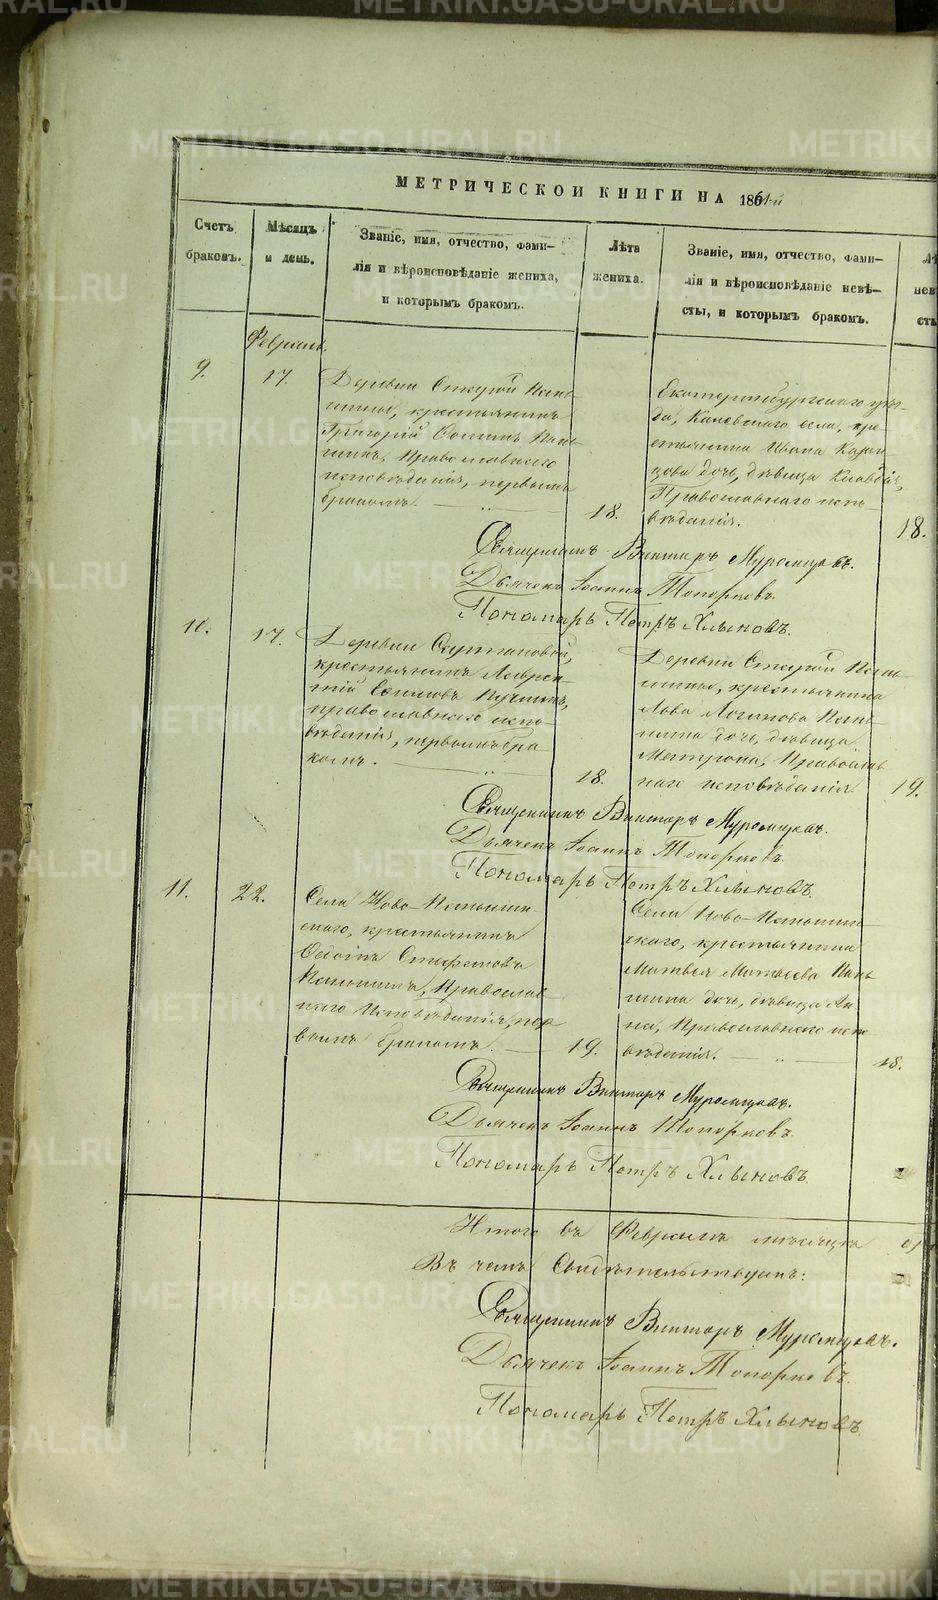 МЕТРИЧЕСКОЙ КНИГИ НА 1861-й
Счетъ браковъ.
Мѣсяцъ и день.
Званіе, имя, отчество, фами-
лія и вѣроисповѣданіе жениха,
и которымъ бракомъ.
Лѣта жениха.
Званіе, имя, отчество, фами-
лія и вѣроисповѣданіе невѣ-
сты, и которымъ бракомъ.
Лѣ
нев
сты
Февраль.
9.
17.
Деревни Старой Пань-
шины, крестьянинъ
Григорій Пань-
шинъ, Православнаго
исповѣданія, первымъ
бракомъ.
18.
Екатеринбургскаго уѣз-
да, села, кре-
стьянина Ивана Казан-
цова дочь, дѣвица Клавдія,
Православнаго испо-
вѣданія.
18.
Священникъ Викторъ Муромцовъ.
Дьячекъ Іоаннъ Топорковъ.
Пономарь Петръ Хлыновъ.
10.
17.
Деревни
крестьянинъ Лаврен-
тій
православнаго испо-
вѣданія, первымъ бра-
комъ.
18.
Деревни Старой Пань-
шины, крестьянина
Льва Логинова Пань-
шина дочь, дѣвица
Матрона, Православ-
наго исповѣданія
19.
Священникъ Викторъ Муромцовъ.
Дьячекъ Іоаннъ Топорковъ.
Пономарь Петръ Хлыновъ.
11.
22.
Села Ново-Паньшин-
скаго, крестьянинъ
Стефановъ
Паньшинъ, Православ-
наго Исповѣданія, пер-
вымъ бракомъ.
19.
Села Ново-Паньшин-
скаго, крестьянина
Матвея Матвеева Пань-
шина дочь, дѣвица Ан-
на, Православнаго испо-
вѣданія.
18.
Священникъ Викторъ Муромцовъ.
Дьячекъ Іоаннъ Топорковъ.
Пономарь Петръ Хлыновъ.
Итого въ Февралѣ мѣсяцѣ
Въ чемъ Свидѣтельствуемъ:
Священникъ Викторъ Муромцовъ.
Дьячекъ Іоаннъ Топорковъ.
Пономарь Петръ Хлыновъ.
METRIKI.GASO-URAL.RU